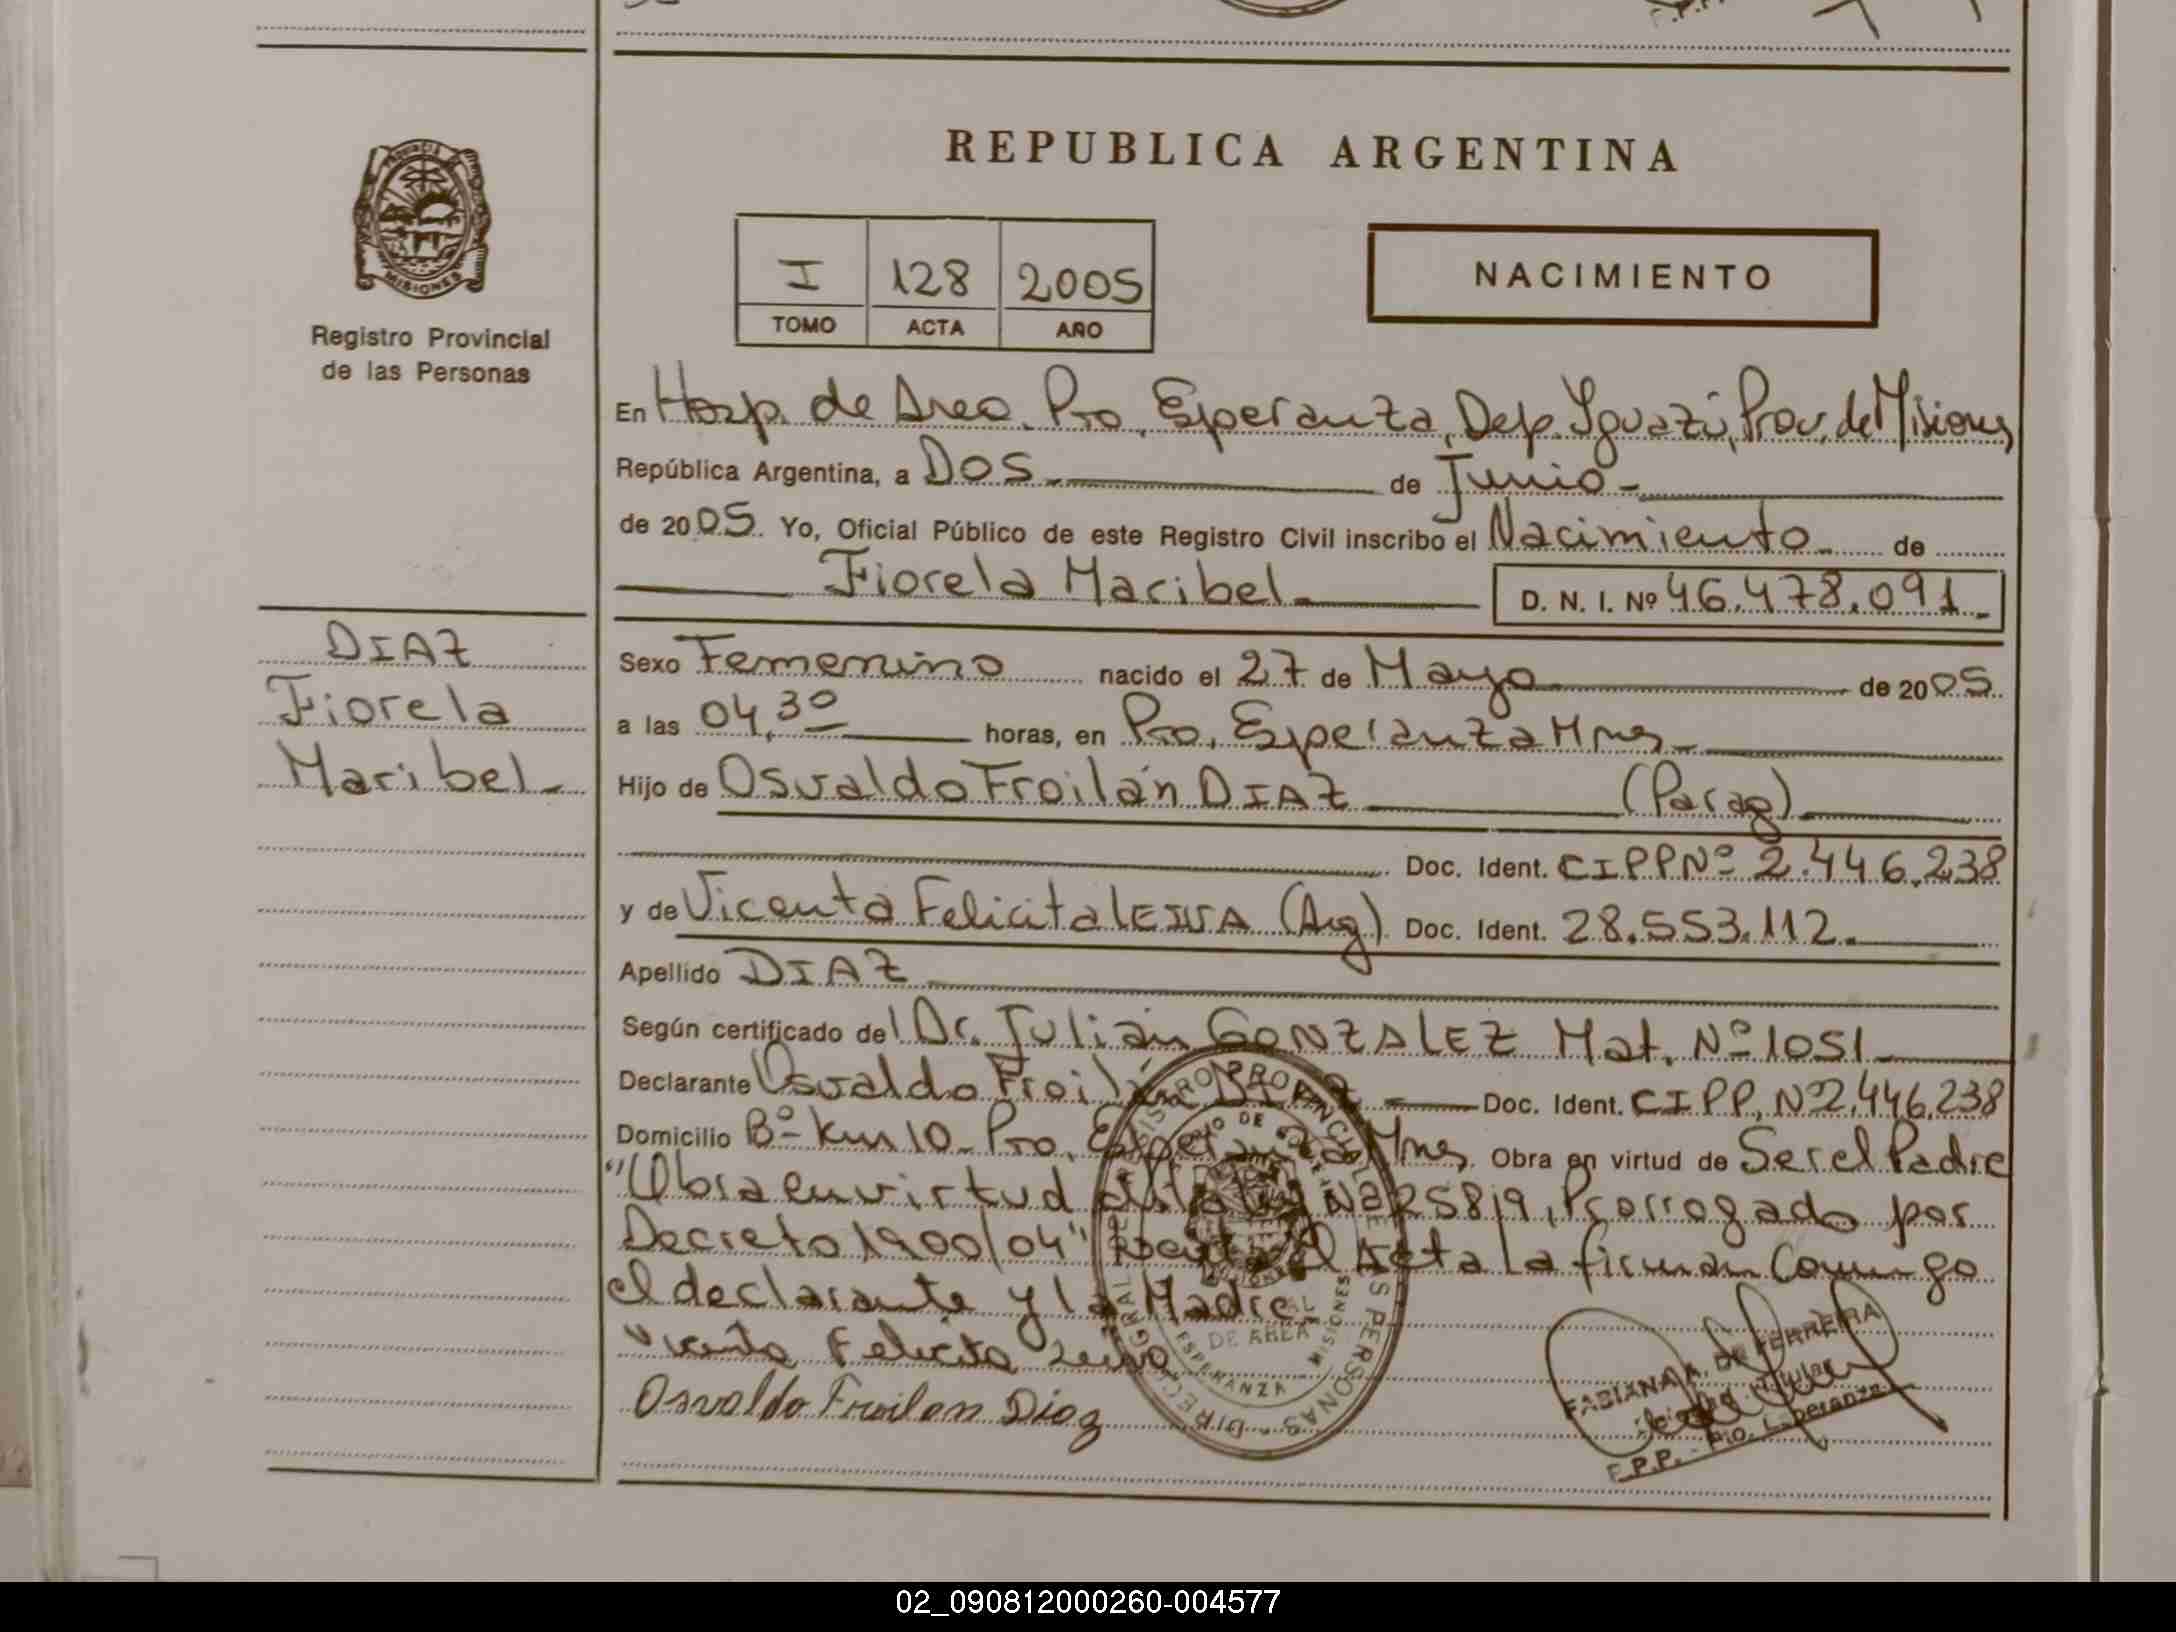 REPUBLICA ARGENTINA
PROVINCIA
MISIONES
Registro Provincial
de las Personas
I 128 2005
TOMO ACTA AÑO
NACIMIENTO
En Hosp. de Area. Pto. Esperanza, Dep. Yguazú, Prov. de Misiones
República Argentina, a Dos de Junio
de 2005. Yo, Oficial Público de este Registro Civil inscribo el Nacimiento de
Fiorela Maribel D. N. I. Nº 46.478.091.
DIAZ
Fiorela
Maribel
Sexo Femenino nacido el 27 de Mayo de 2005
a las 04,30 horas, en Pto. Esperanza Mnes
Hijo de Osvaldo Froilán DIAZ (Parag)
Doc. Ident. CIPP Nº 2.446.238
y de Vicenta Felicita LEIVA (Arg) Doc. Ident. 28.553.112.
Apellido DIAZ
Según certificado del Dr. Julián GONZALEZ Mat. Nº 1051
Declarante Osvaldo Froilán DIAZ Doc. Ident. CIPP. Nº 2.446.238
Domicilio Bº Km 10 - Pto. Esperanza Mnes. Obra en virtud de Ser el Padre
"Obra en virtud de la Ley Nº 25819, Prorrogado por
Decreto 1900/04" el Acta la firman Conmigo
el declarante y la Madre
Vicenta Felicita Leiva
Osvaldo Froilan Diaz
DE AREA
ESPERANZA - MISIONES
FABIANA A. DE FERREIRA
Titular
Pto. Esperanza
02_090812000260-004577